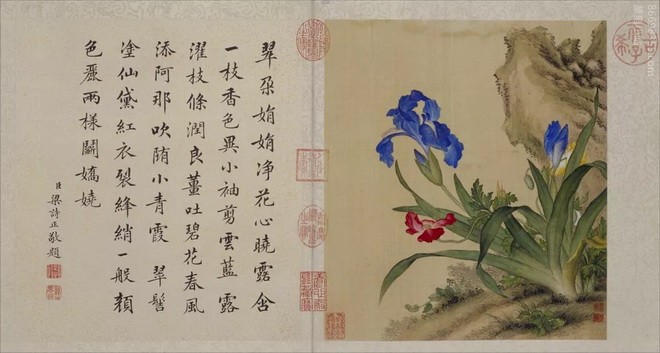 翠朶娟娟净花心曉露含
一枝香色異小袖剪雲藍露
濯枝條潤良薑吐碧花春風
添阿那吹陏小青霞 翠髻
塗仙黛紅衣裂絳綃一般顏
色麗兩樣鬭嬌嬈
臣梁詩正敬題
古希天子